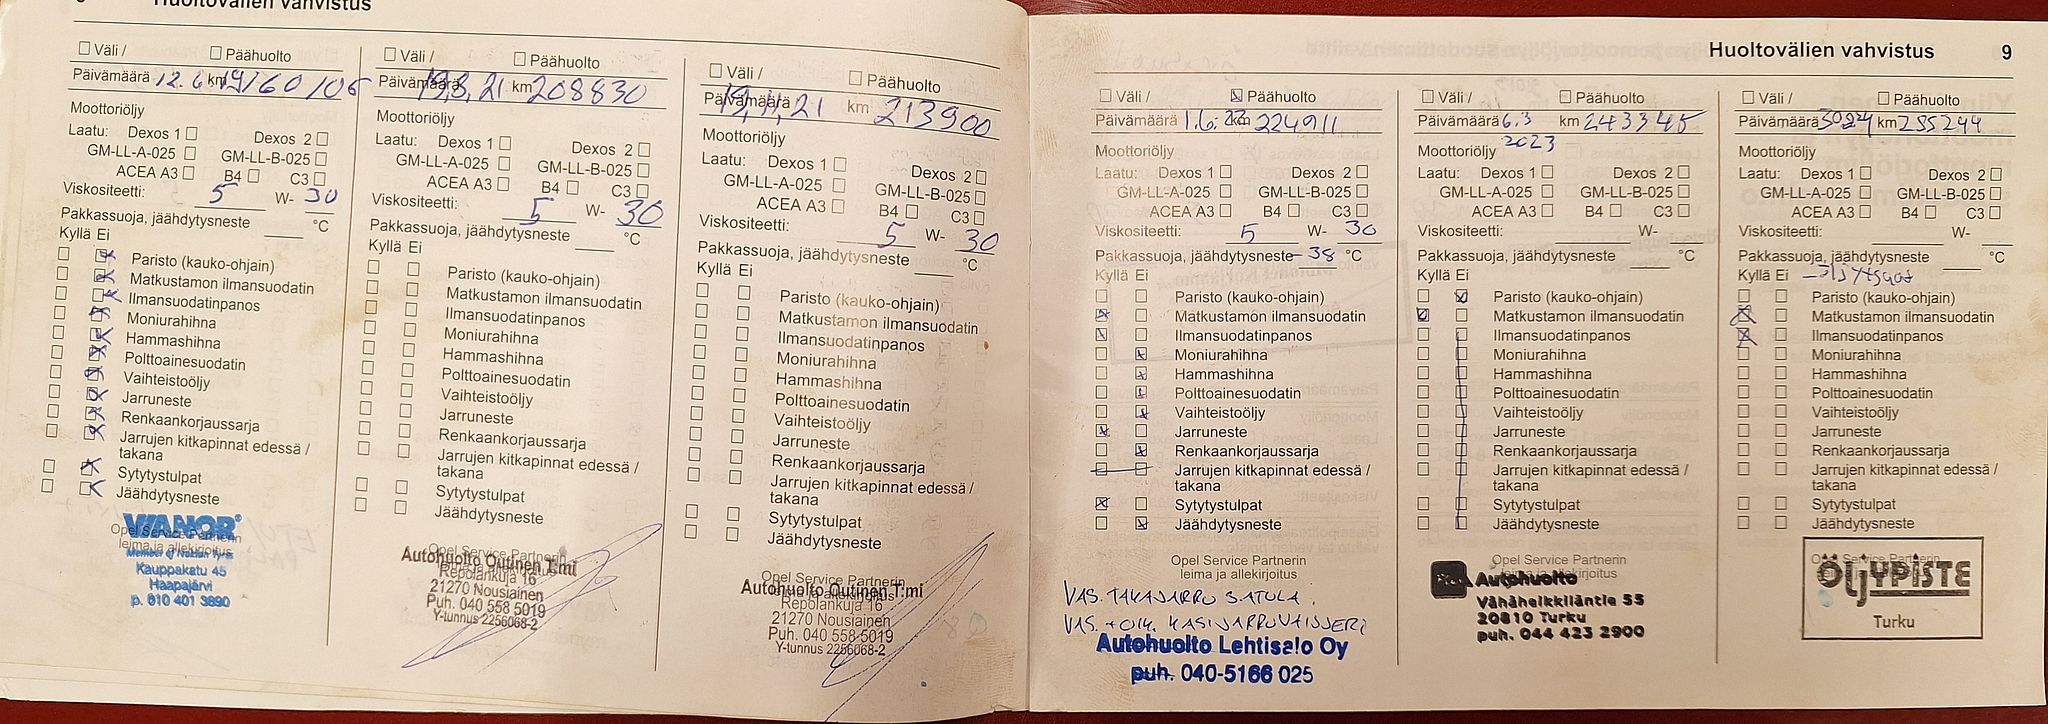 Huoltovälien vahvistus
Väli / Päähuolto
Päivämäärä 12.6.19 km 160106
Moottoriöljy
Laatu: Dexos 1 Dexos 2
GM-LL-A-025 GM-LL-B-025
ACEA A3 B4 C3
Viskositeetti: 5 W- 30
Pakkassuoja, jäähdytysneste °C
Kyllä Ei
Paristo (kauko-ohjain)
Matkustamon ilmansuodatin
Ilmansuodatinpanos
Moniurahihna
Hammashihna
Polttoainesuodatin
Vaihteistoöljy
Jarruneste
Renkaankorjaussarja
Jarrujen kitkapinnat edessä /
takana
Sytytystulpat
Jäähdytysneste
Opel Service Partnerin
leima ja allekirjoitus
VIANOR
Member of Nokian Tyres
Kauppakatu 45
Haapajärvi
p. 010 401 3690
Väli / Päähuolto
Päivämäärä 19,8,21 km 208830
Moottoriöljy
Laatu: Dexos 1 Dexos 2
GM-LL-A-025 GM-LL-B-025
ACEA A3 B4 C3
Viskositeetti: 5 W- 30
Pakkassuoja, jäähdytysneste °C
Kyllä Ei
Paristo (kauko-ohjain)
Matkustamon ilmansuodatin
Ilmansuodatinpanos
Moniurahihna
Hammashihna
Polttoainesuodatin
Vaihteistoöljy
Jarruneste
Renkaankorjaussarja
Jarrujen kitkapinnat edessä /
takana
Sytytystulpat
Jäähdytysneste
Opel Service Partnerin
leima ja allekirjoitus
Autohuolto Outinen T:mi
Repolankuja 16
21270 Nousiainen
Puh. 040 558 5019
Y-tunnus 2256068-2
Väli / Päähuolto
Päivämäärä 19,11,21 km 213900
Moottoriöljy
Laatu: Dexos 1 Dexos 2
GM-LL-A-025 GM-LL-B-025
ACEA A3 B4 C3
Viskositeetti: 5 W- 30
Pakkassuoja, jäähdytysneste °C
Kyllä Ei
Paristo (kauko-ohjain)
Matkustamon ilmansuodatin
Ilmansuodatinpanos
Moniurahihna
Hammashihna
Polttoainesuodatin
Vaihteistoöljy
Jarruneste
Renkaankorjaussarja
Jarrujen kitkapinnat edessä /
takana
Sytytystulpat
Jäähdytysneste
Opel Service Partnerin
leima ja allekirjoitus
Autohuolto Outinen T:mi
Repolankuja 16
21270 Nousiainen
Puh. 040 558 5019
Y-tunnus 2256068-2
Huoltovälien vahvistus 9
Väli / Päähuolto
Päivämäärä 1.6.22 km 224911
Moottoriöljy
Laatu: Dexos 1 Dexos 2
GM-LL-A-025 GM-LL-B-025
ACEA A3 B4 C3
Viskositeetti: 5 W- 30
Pakkassuoja, jäähdytysneste -38 °C
Kyllä Ei
Paristo (kauko-ohjain)
Matkustamon ilmansuodatin
Ilmansuodatinpanos
Moniurahihna
Hammashihna
Polttoainesuodatin
Vaihteistoöljy
Jarruneste
Renkaankorjaussarja
Jarrujen kitkapinnat edessä /
takana
Sytytystulpat
Jäähdytysneste
Opel Service Partnerin
leima ja allekirjoitus
VAS. TAKAJARRU SATULA.
VAS. + OIK. KÄSIJARRUVAIJJERI
Autohuolto Lehtisalo Oy
puh. 040-5166 025
Väli / Päähuolto
Päivämäärä 6.3 km 243345
Moottoriöljy 2023
Laatu: Dexos 1 Dexos 2
GM-LL-A-025 GM-LL-B-025
ACEA A3 B4 C3
Viskositeetti: W-
Pakkassuoja, jäähdytysneste °C
Kyllä Ei
Paristo (kauko-ohjain)
Matkustamon ilmansuodatin
Ilmansuodatinpanos
Moniurahihna
Hammashihna
Polttoainesuodatin
Vaihteistoöljy
Jarruneste
Renkaankorjaussarja
Jarrujen kitkapinnat edessä /
takana
Sytytystulpat
Jäähdytysneste
Opel Service Partnerin
leima ja allekirjoitus
Autohuolto
Vähäheikkiläntie 55
20810 Turku
puh. 044 423 2900
Väli / Päähuolto
Päivämäärä km 255244
Moottoriöljy
Laatu: Dexos 1 Dexos 2
GM-LL-A-025 GM-LL-B-025
ACEA A3 B4 C3
Viskositeetti: W-
Pakkassuoja, jäähdytysneste °C
Kyllä Ei
Paristo (kauko-ohjain)
Matkustamon ilmansuodatin
Ilmansuodatinpanos
Moniurahihna
Hammashihna
Polttoainesuodatin
Vaihteistoöljy
Jarruneste
Renkaankorjaussarja
Jarrujen kitkapinnat edessä /
takana
Sytytystulpat
Jäähdytysneste
Opel Service Partnerin
leima ja allekirjoitus
ÖLJYPISTE
Turku